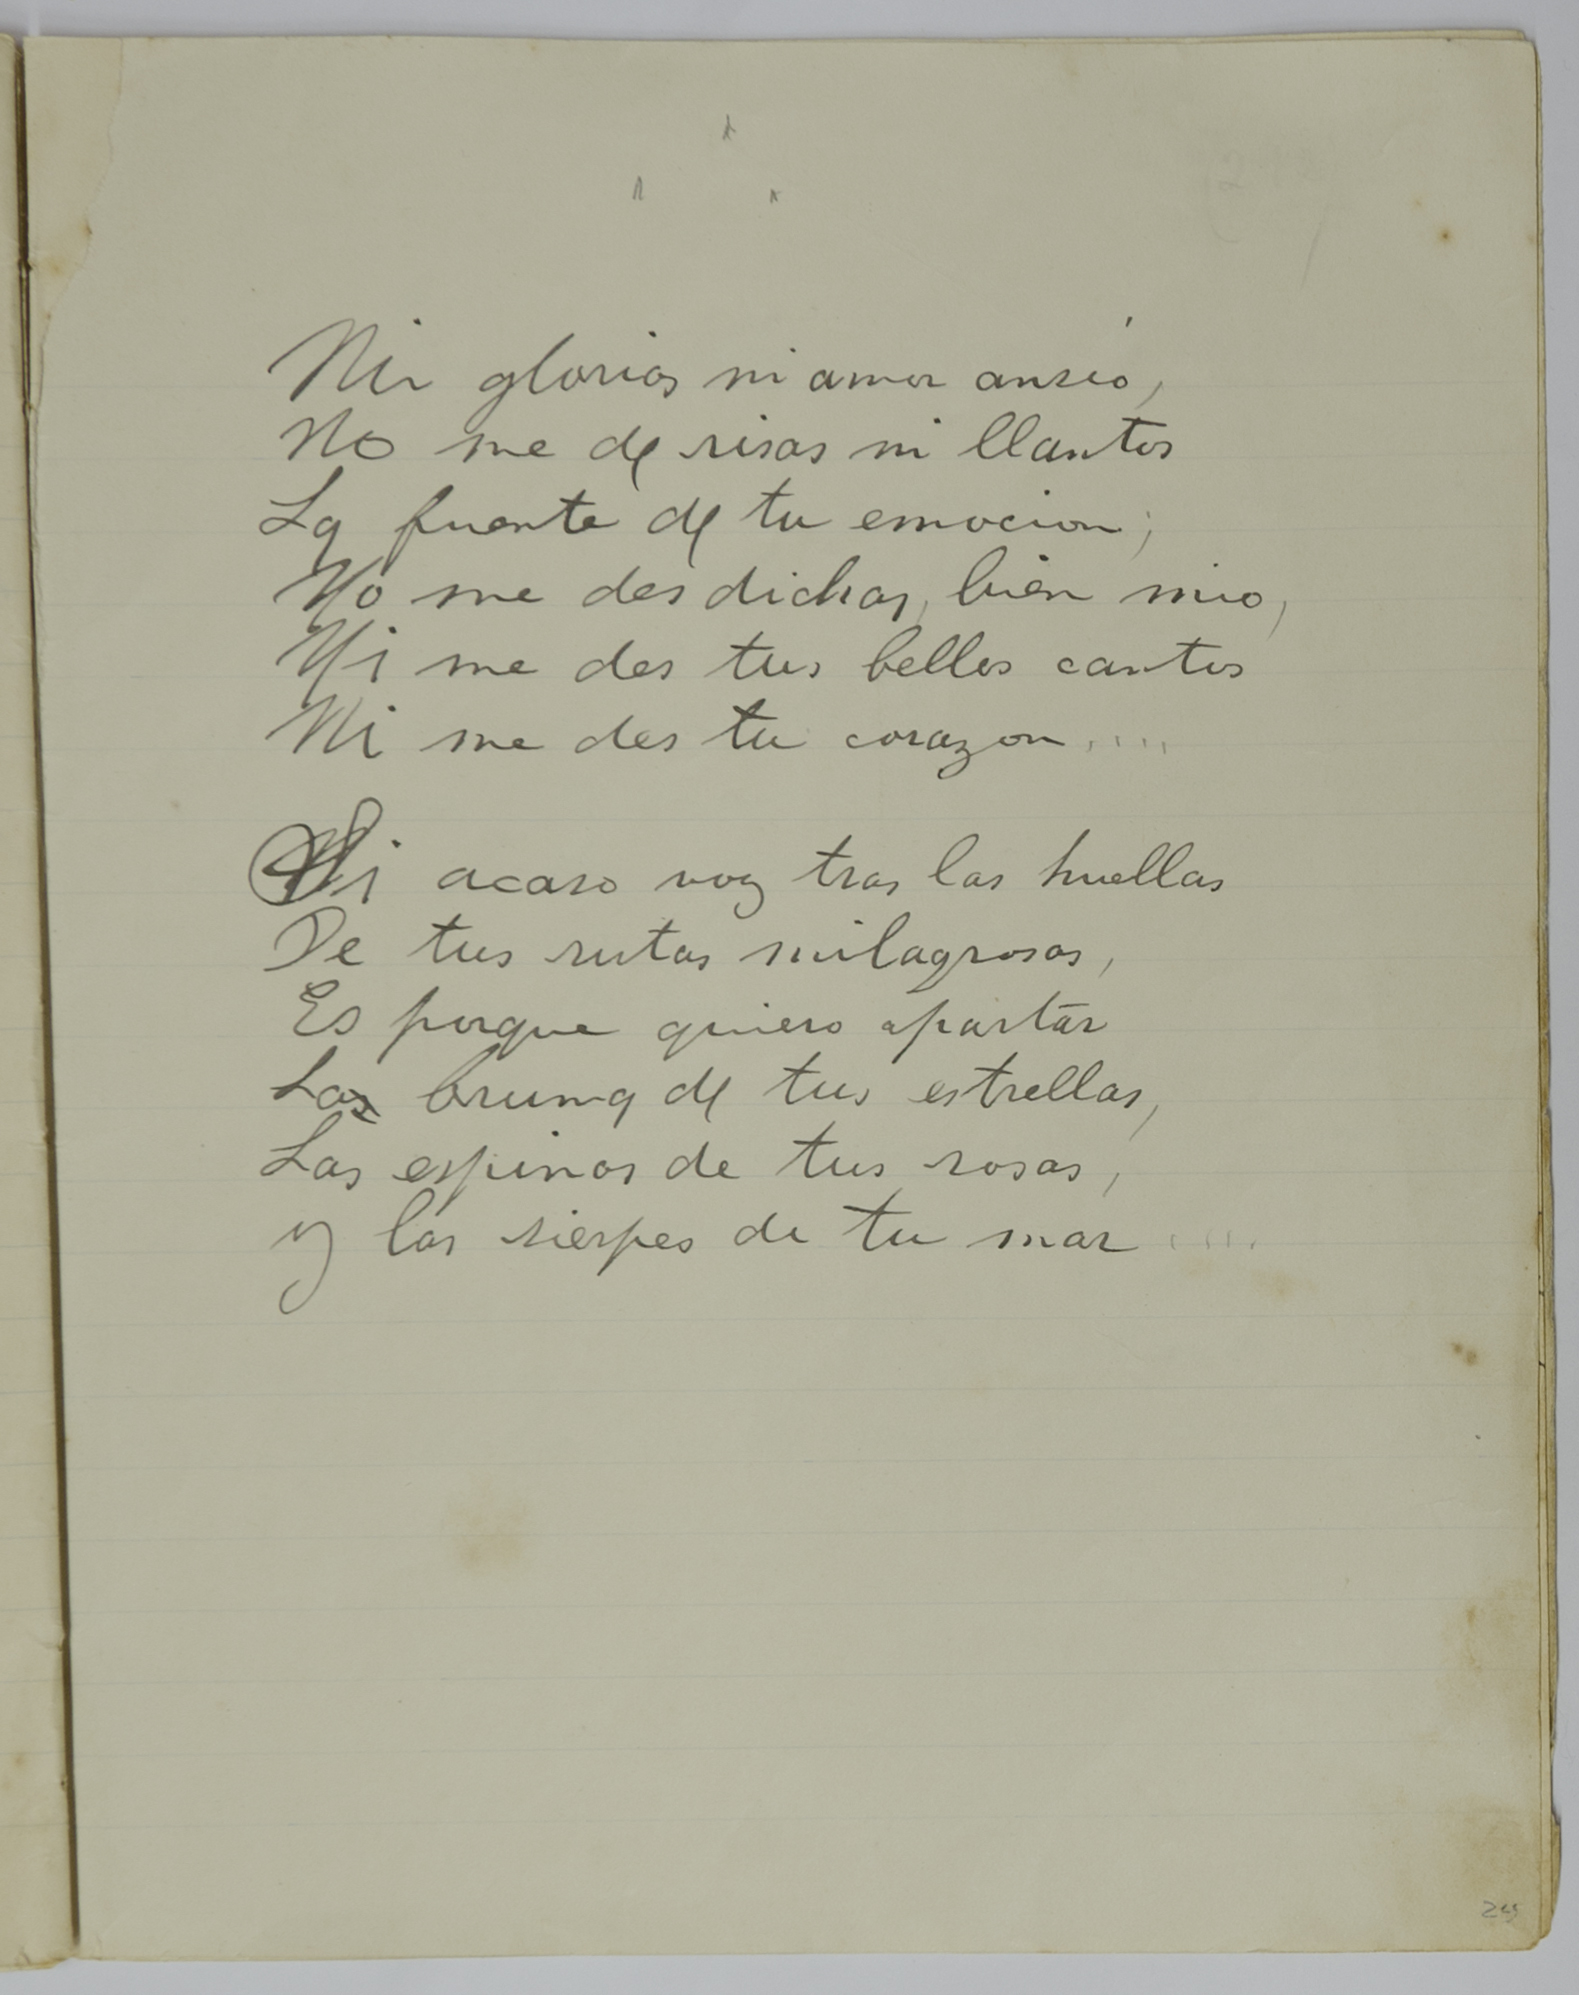 Ni glorias ni amor ansío,
No me de risas ni llantos
La fuente de tu emocion;
No me des dichas, bien mio,
Ni me des tus bellos cantos
Ni me des tu corazon....
Si acaso voy tras las huellas
De tus rutas milagrosas,
Es porque quiero apartar
La bruma de tus estrellas,
Las espinas de tus rosas,
y las sierpes de tu mar....